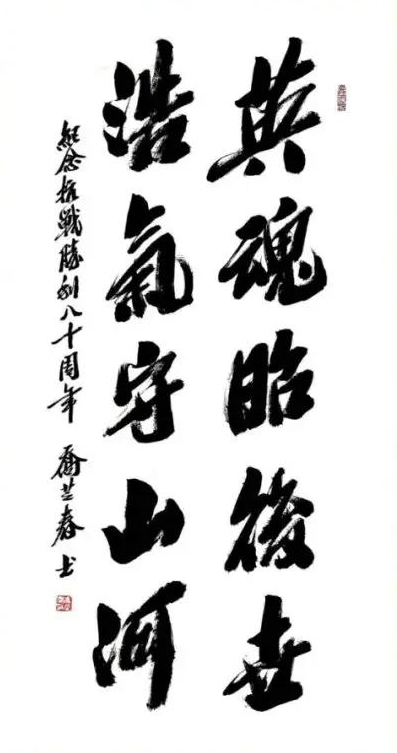 英魂昭後世
浩氣守山河
紀念抗戰勝利八十周年 喬芝春书